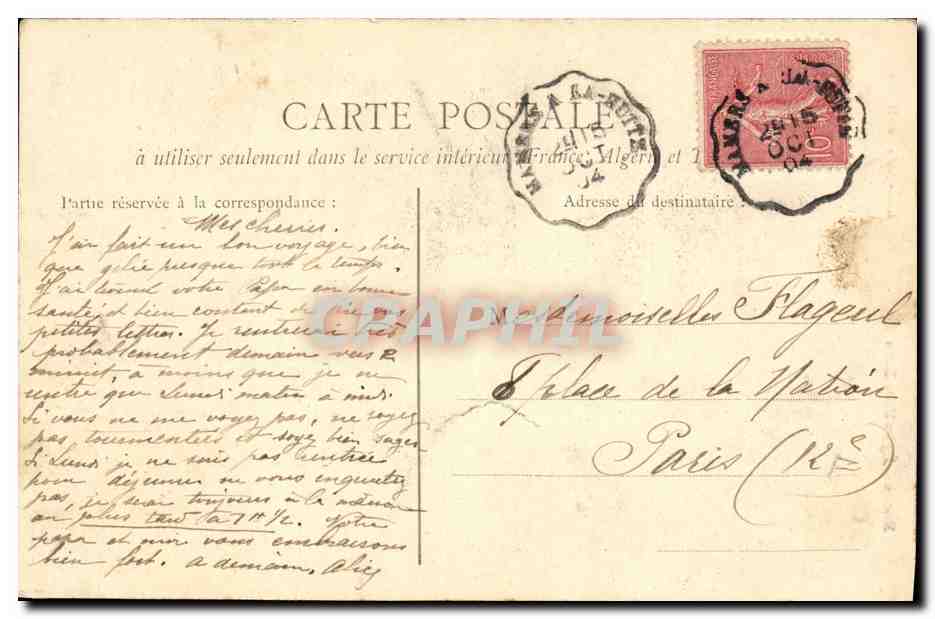 CARTE POSTALE
à utiliser seulement dans le service intérieur (France, Algérie et T
Partie réservée à la correspondance :
Adresse du destinataire :
MAMERS A LA-HUTTE
2E 15
OCT
04
MAMERS A LA-HUTTE
2E 15
OCT
04
10
Mes cheries.
J'ai fait un bon voyage, bien
que gêlée presque tout le temps.
J'ai trouvé votre Papa en bonne
santé, et bien content de lire vos
petites lettres. Je rentrerai très
probablement demain vers
minuit, à moins que je ne
rentre que Lundi matin à midi.
Si vous ne me voyez pas, ne soyez
pas tourmentées et soyez bien sages
Si Lundi je ne suis pas rentrée
pour déjeuner ne vous inquietez
pas, je serai toujours à la maison
au plus tard à 7H 1/2. Votre
papa et moi vous embrassons
bien fort. a demain, Alice
Mesdemoiselles Flageul
8 place de la Nation
Paris (12e)
CPAPHIL